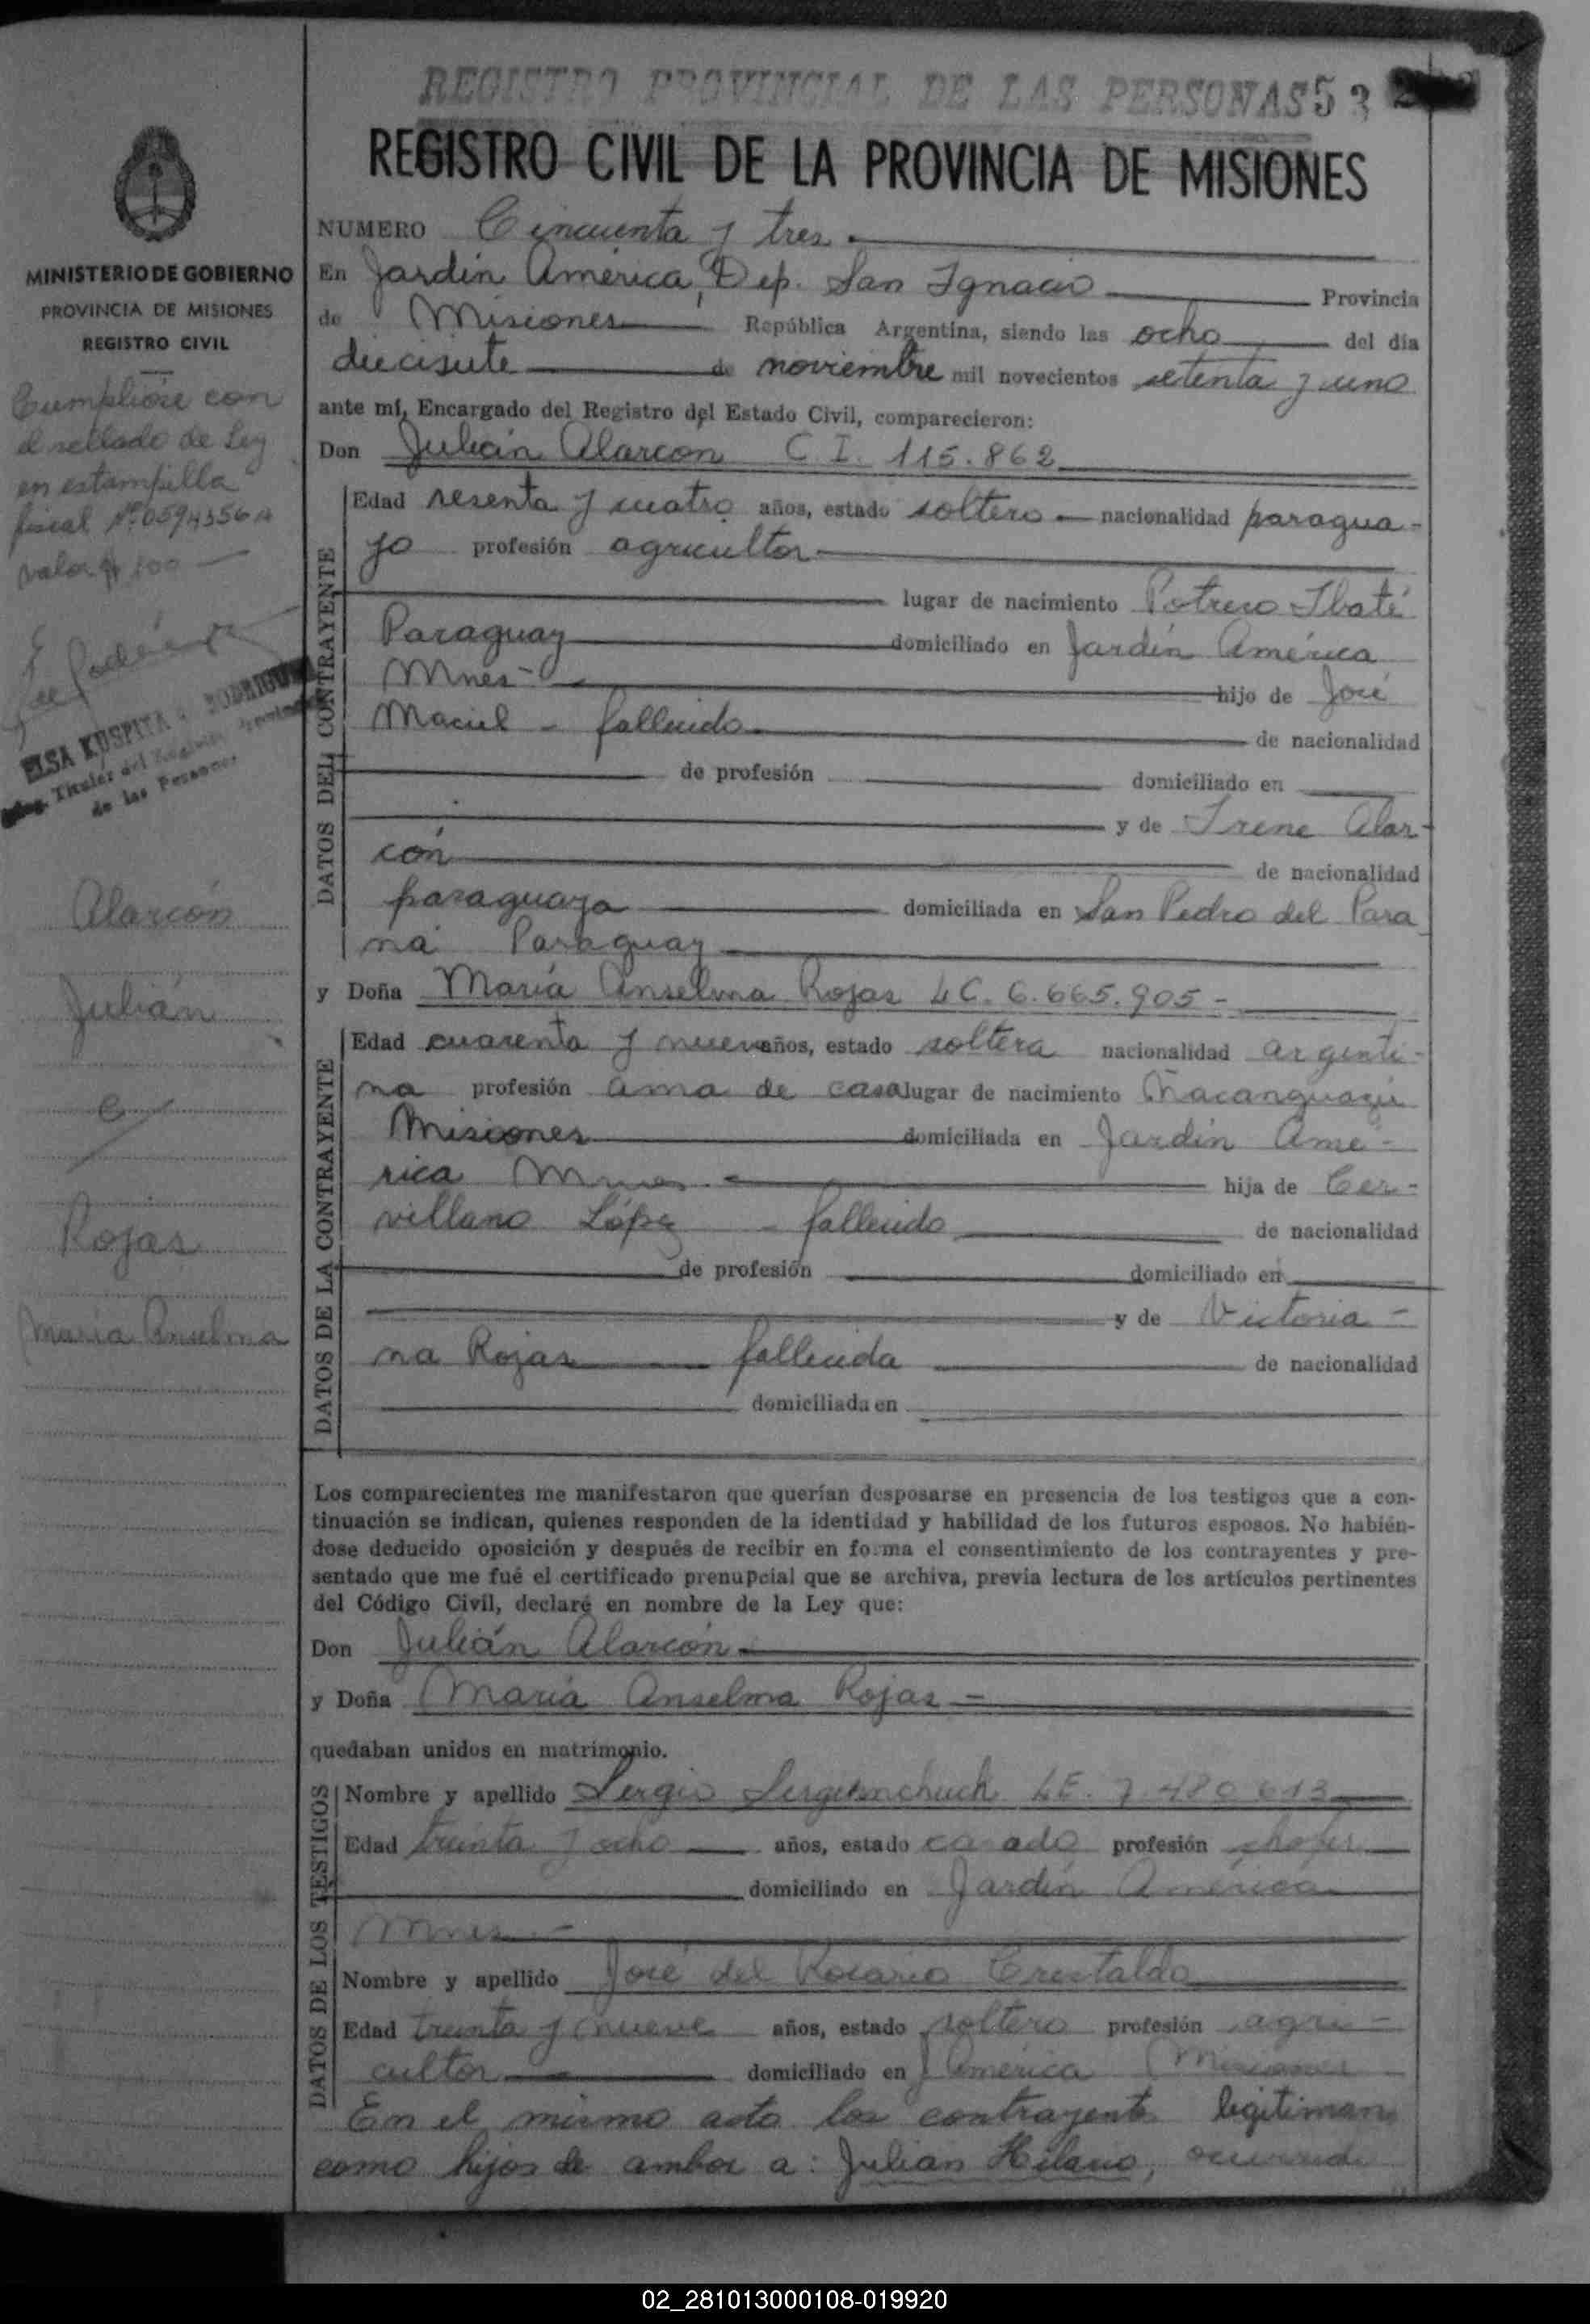 REGISTRO PROVINCIAL DE LAS PERSONAS 53
REGISTRO CIVIL DE LA PROVINCIA DE MISIONES
MINISTERIO DE GOBIERNO
PROVINCIA DE MISIONES
REGISTRO CIVIL
Cumplióse con
el sellado de Ley
en estampilla
fiscal Nº 0594356 A
valor $ 100
ELSA KUSPITA RODRIGUEZ
Titular del Registro Provincial
de las Personas
Alarcón
Julián
e
Rojas
María Anselma
NUMERO Cincuenta y tres
En Jardín América, Dep. San Ignacio Provincia
de Misiones República Argentina, siendo las ocho del día
diecisiete de noviembre mil novecientos setenta y uno
ante mí, Encargado del Registro del Estado Civil, comparecieron:
Don Julián Alarcon C. I. 115.862
DATOS DEL CONTRAYENTE
Edad sesenta y cuatro años, estado soltero nacionalidad paragua-
yo profesión agricultor
lugar de nacimiento Potrero Ibaté
Paraguay domiciliado en Jardín América
Mnes- hijo de José
Maciel - fallecido de nacionalidad
de profesión domiciliado en
y de Irene Alar-
cón de nacionalidad
paraguaya domiciliada en San Pedro del Para
ná Paraguay
y Doña María Anselma Rojas LC. 6.665.905-
DATOS DE LA CONTRAYENTE
Edad cuarenta y nueve años, estado soltera nacionalidad argenti-
na profesión ama de casa lugar de nacimiento Ñacanguazú
Misiones domiciliada en Jardín Amé-
rica Mnes. hija de Cer-
villano López - fallecido de nacionalidad
de profesión domiciliado en
y de Victoria-
na Rojas fallecida de nacionalidad
domiciliada en
Los comparecientes me manifestaron que querían desposarse en presencia de los testigos que a con-
tinuación se indican, quienes responden de la identidad y habilidad de los futuros esposos. No habién-
dose deducido oposición y después de recibir en forma el consentimiento de los contrayentes y pre-
sentado que me fué el certificado prenupcial que se archiva, previa lectura de los artículos pertinentes
del Código Civil, declaré en nombre de la Ley que:
Don Julián Alarcón
y Doña María Anselma Rojas
quedaban unidos en matrimonio.
DATOS DE LOS TESTIGOS
Nombre y apellido Sergio LE. 7.480.613
Edad treinta y ocho años, estado casado profesión chofer
domiciliado en Jardín América
Mnes.-
Nombre y apellido José del Rosario Cristaldo
Edad treinta y nueve años, estado soltero profesión agri-
cultor domiciliado en J. América Misiones
En el mismo acto los contrayentes legitiman
como hijos de ambos a: Julian Hilario, ocurrido
02_281013000108-019920